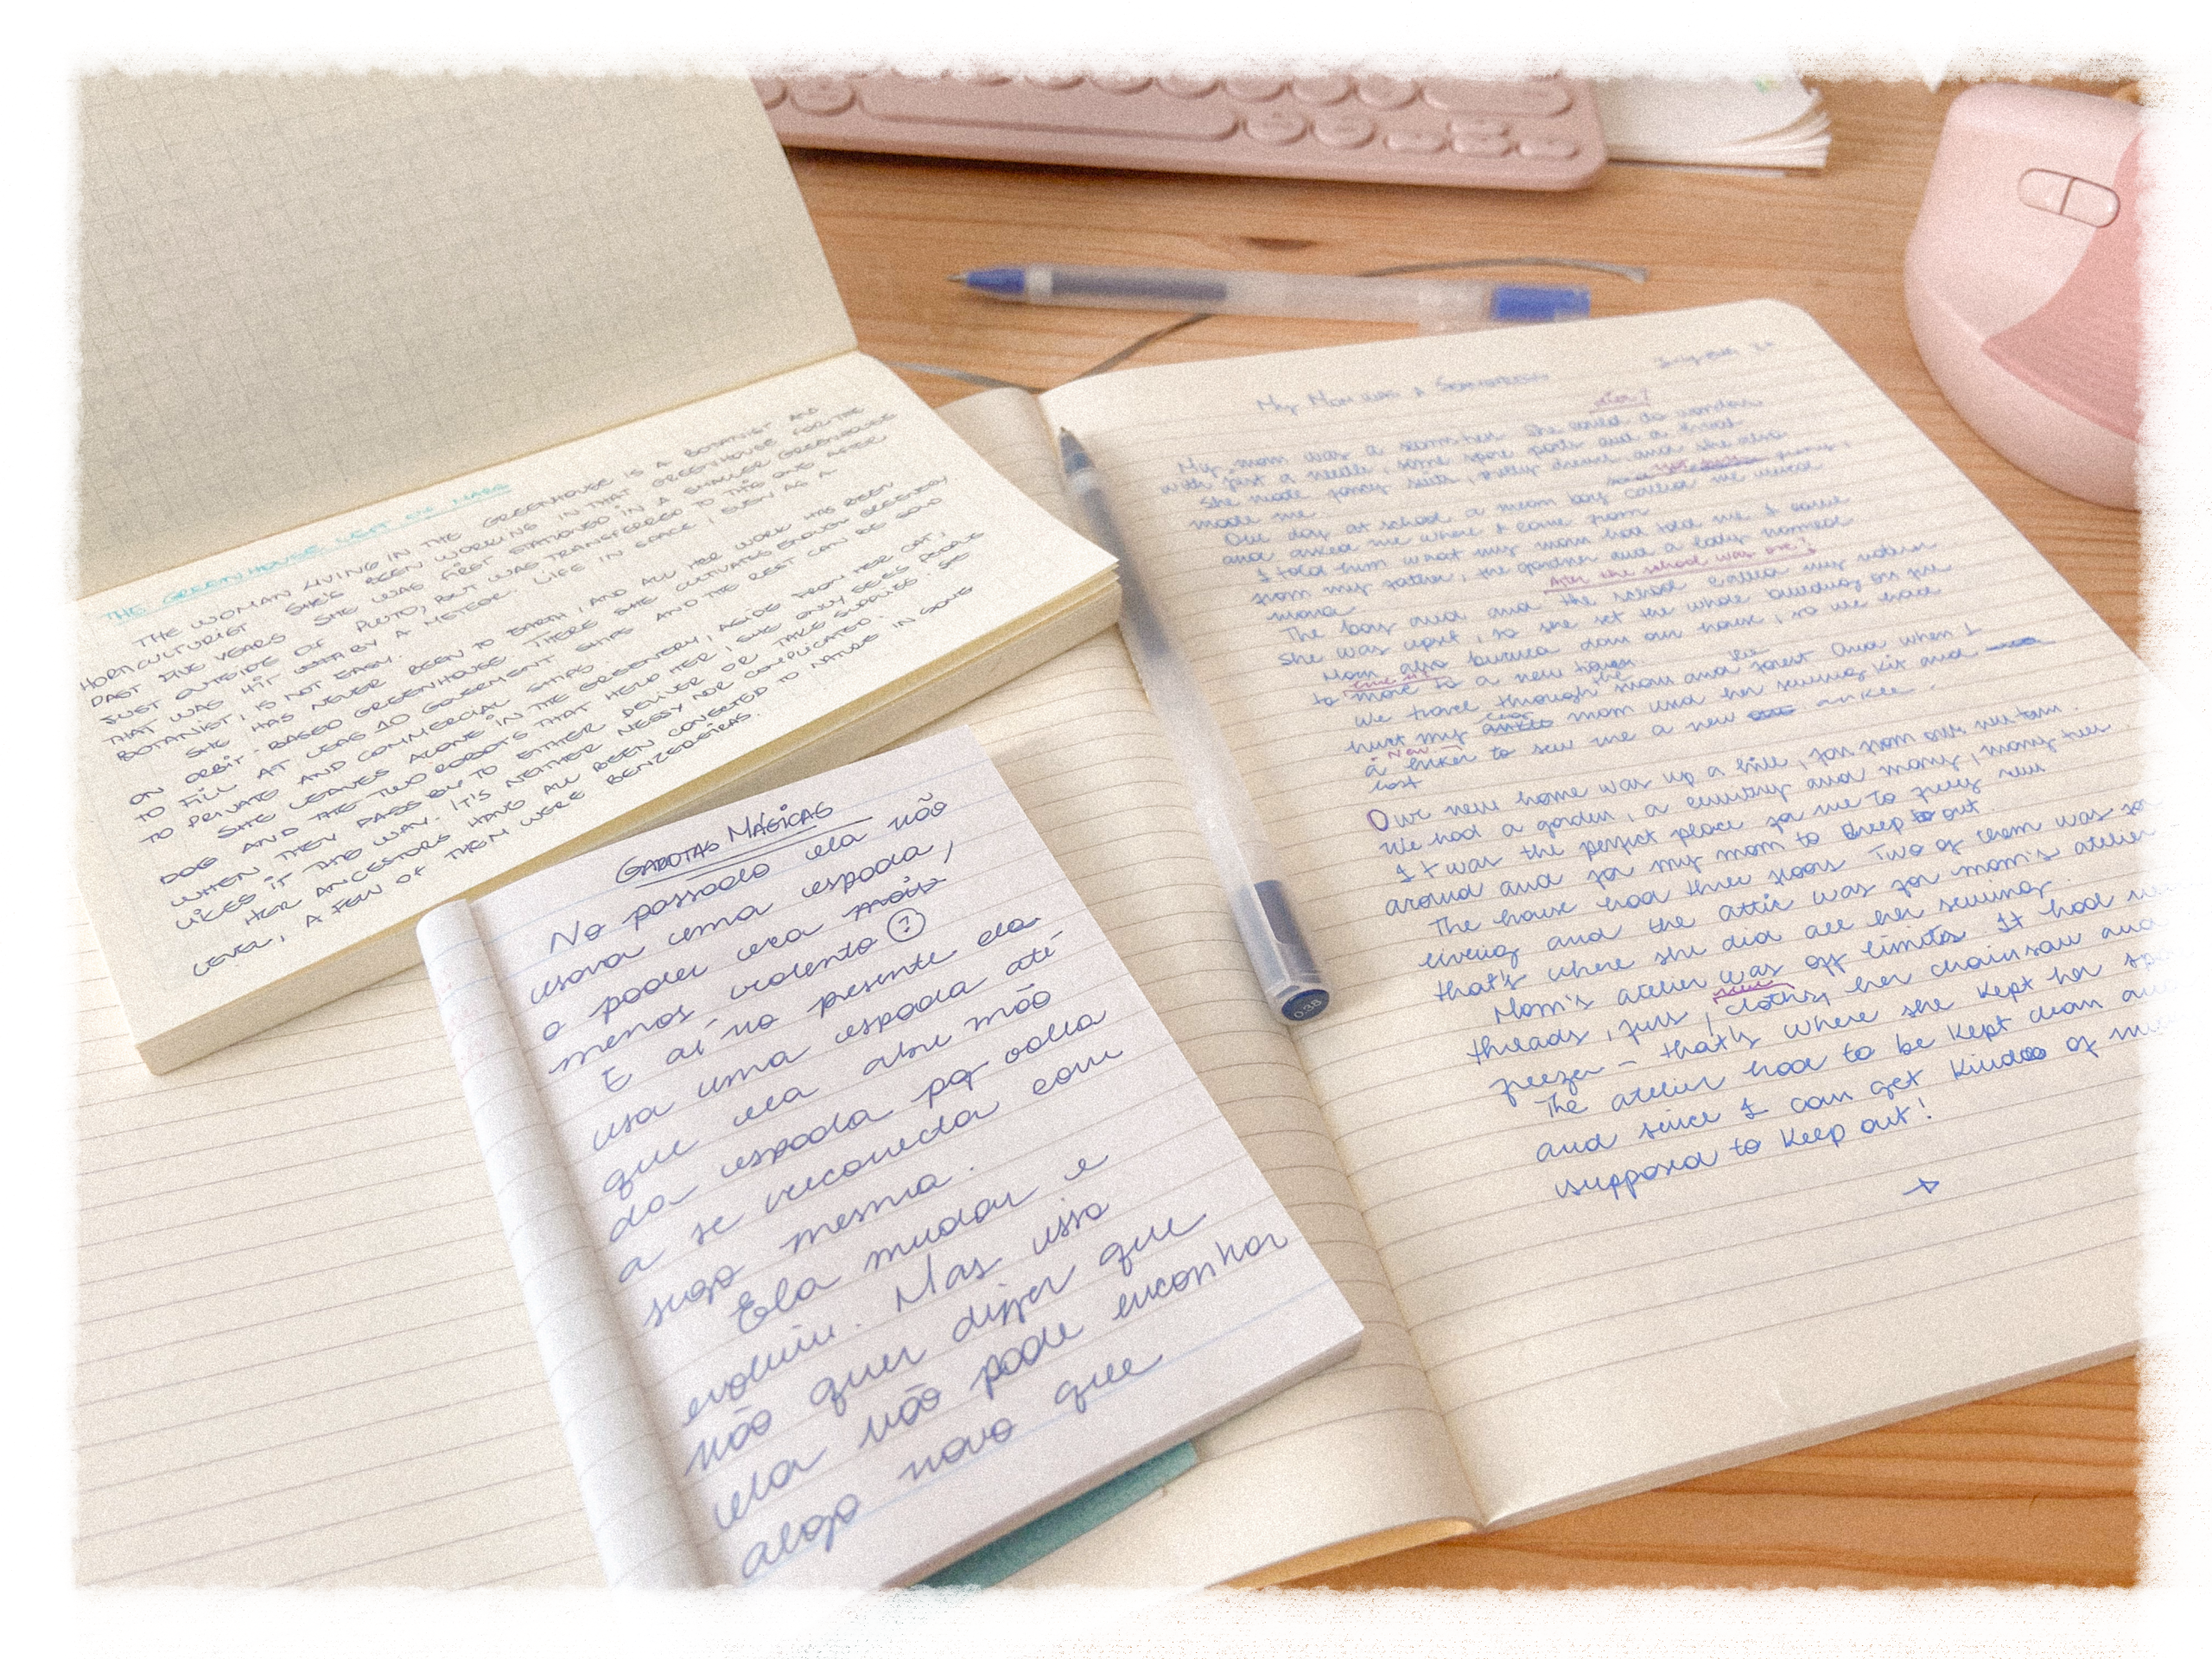 THE GREENHOUSE LEFT ON MARS
THE WOMAN LIVING IN THE GREENHOUSE IS A BOTANIST AND
HORTICULTURIST. SHE'S BEEN WORKING IN THAT GREENHOUSE FOR THE
PAST FIVE YEARS. SHE WAS FIRST STATIONED IN A SMALLER GREENHOUSE
JUST OUTSIDE OF PLUTO, BUT WAS TRANSFERRED TO THIS ONE AFTER
THAT WAS HIT BY A METEOR. LIFE IN SPACE, EVEN AS A
BOTANIST, IS NOT EASY.
SHE HAS NEVER BEEN TO EARTH, AND ALL HER WORK HAS BEEN
ON ORBIT-BASED GREENHOUSE. THERE SHE CULTIVATES ENOUGH GREENERY
TO FILL AT LEAS 10 GOVERMENT SHIPS AND THE REST CAN BE SOLD
TO PRIVATE AND COMMERCIAL SHIPS.
SHE LEAVES ALONE IN THE GREENERY, ASIDE FROM HER CAT,
DOG AND THE TWO ROBOTS THAT HELP HER, SHE ONLY SEES PEOPLE
WHEN THEY PASS BY TO EITHER DELIVER OR TAKE SUPPLIES. SHE
LIKES IT THIS WAY. IT'S NEITHER MESSY NOR COMPLICATED.
HER ANCESTORS HAVE ALL BEEN CONNECTED TO NATURE IN SOME
LEVEL, A FEW OF THEM WERE BENZEDEIRAS.
GAROTAS MÁGICAS
No passado ela não
usava uma espada,
o poder era mais
menos violento
E aí no presente ela
usa uma espada até
que ela abre mão
da espada pq volta
a se reconecta com
sigo mesma.
Ela mudar e
evoluiu. Mas isso
não quer dizer que
ela não pode encontrar
algo novo que
My Mom was a Seamstress
My mom was a seamstress. She could do wonders
with just a needle, some spare parts and a
She made fancy suits, pretty dresses and she also
made me.
One day at school a mean boy called me
and asked me where I came from
I told him what my mom had told me I came
from my father, the gardner and a lady named
The boy and the school called my
After the school was over!
she was upset, so she set the whole building on fire
Mom also burned down our house, so we had
to move to a new
We travel through the and forest And when I
hurt my mom used her sewing kit and
a to sew me a new ankle.
lost
Our new home was up a hill, far from our
We had a garden, a and many, many trees
It was the perfect place for me to freely run
around and for my mom to keep out.
The house had three floors. Two of them was for
living and the attic was for mom's atelier
that's where she did all her sewing.
Mom's atelier was off limits. It had
threads, furs, cloths, her chainsaw and
freezer – that's where she kept her
The atelier had to be kept clean
and since I can get kinda of
supposed to keep out!
→
0.38